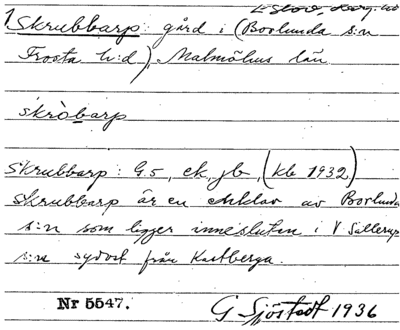 Skrubbarp: gård i (Borlunda s:n
Frosta h:d), Malmöhus län.
skròbarp
Skrubbarp: G.5, ek, jb, (kb 1932)
Skrubbarp är en enklav av Borlunda
s:n som ligger innesluten i V Sallerup
s:n sydost från Kastberga.
Nr 5547.
G Sjöstedt 1936